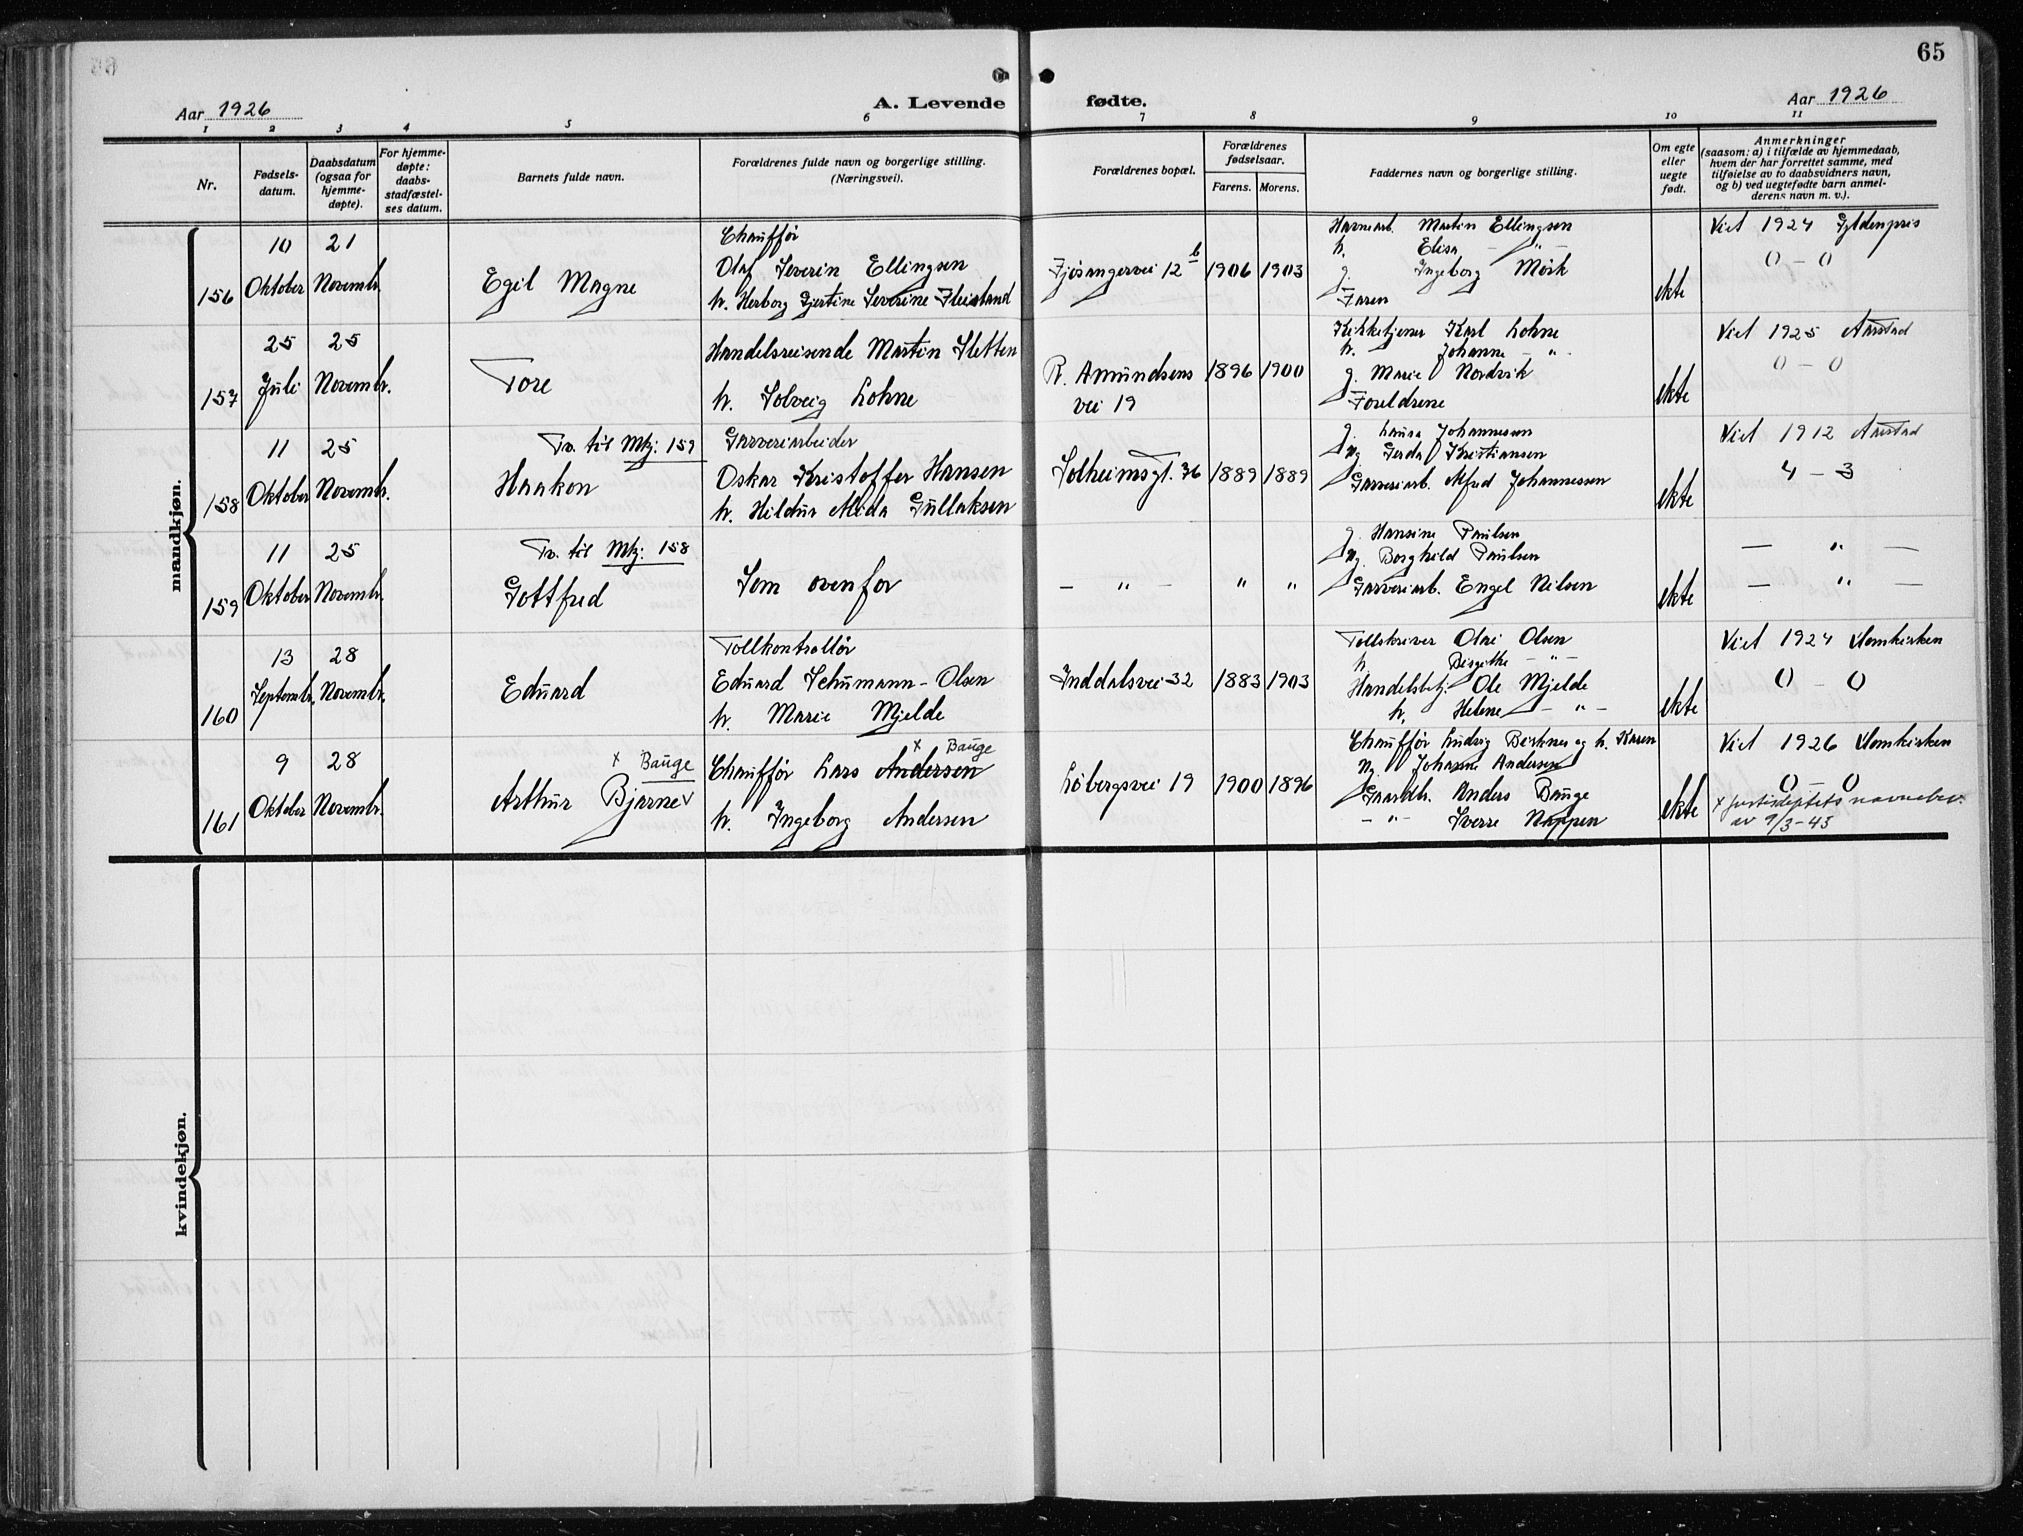 65
Aar 1926
A. Levende fødte.
Aar 1926
1 2 3 4 5 6 7 8 9 10 11
Nr.
Fødsels-
datum.
Daabsdatum
(ogsaa for
hjemme-
døpte).
For hjemme-
døpte:
daabs-
stadfæstel-
ses datum.
Barnets fulde navn.
Forældrenes fulde navn og borgerlige stilling.
(Næringsvei).
Forældrenes bopæl.
Forældrenes
fødselsaar.
Farens. Morens.
Faddernes navn og borgerlige stilling.
Om egte
eller
uegte
født.
Anmerkninger
(saasom: a) i tilfælde av hjemmedaab,
hvem der har forrettet samme, med
tilføielse av to daabsvidners navn,
og b) ved uegtefødte barn anmel-
derens navn m. v.).
mandkjøn.
156
10
Oktober
21
Novembr.
Egil Magne
Chauffør
Olaf Severin Ellingsen
h. Herborg Gjertine Severine Fleisland
Fjøsangervei 12 b
1906 1903
Havnearb. Martin Ellingsen
h. Elisa — " —
g. Ingeborg Mørk
Faren
ekte
Viet 1924 Gyldenpris
0 — 0
157
25
Juli
25
Novembr.
Tore
Handelsreisende Martin Sletten
h. Solveig Lohne
R. Amundsens
vei 19
1896 1900
Kirketjener Karl Lohne
h. Johanne — " -
g. Marie Nordvik
Foreldrene
ekte
Viet 1925 Aarstad
0 — 0
158
11
Oktober
25
Novembr.
Tv. til Mkj: 159
Haakon
Garveriarbeider
Oskar Kristoffer Hansen
h. Hildur Alida Gullaksen
Solheimsgt. 36
1889 1889
g. Laura Johannesen
Ug Gerda Kristiansen
Garveriarb. Alfred Johannessen
ekte
Viet 1912 Aarstad
4 — 3
159
11
Oktober
25
Novembr.
Tv. til Mkj: 158
Gottfred
Som ovenfor
— " —
" "
g. Hansine Paulsen
Ug. Borghild Paulsen
Garveriarb. Engel Nilsen
ekte
— " —
— " —
160
13
Septembr.
28
Novembr.
Eduard
Tollkontrollør
Eduard Schumann-Olsen
h. Marie Mjelde
Inddalsvei 32
1883 1903
Tollskriver Olai Olsen
h. Birgithe — " -
Handelsbetj. Ole Mjelde
h. Helene — " -
ekte
Viet 1924 Domkirken
0 — 0
161
9
Oktober
28
Novembr.
x Bauge
Arthur Bjarne v
x Bauge
Chauffør Lars Andersen
h. Ingeborg Andersen
Løbergsvei 19
1900 1896
Chauffør Ludvig Birknes og h. Karen
Ug. Johanne Andersen
Gaardbr. Anders Bauge
— " — Sverre Nappen
ekte
Viet 1926 Domkirken
0 — 0
x justisdeptets navnebev.
av 9/3-43
kvindekjøn.